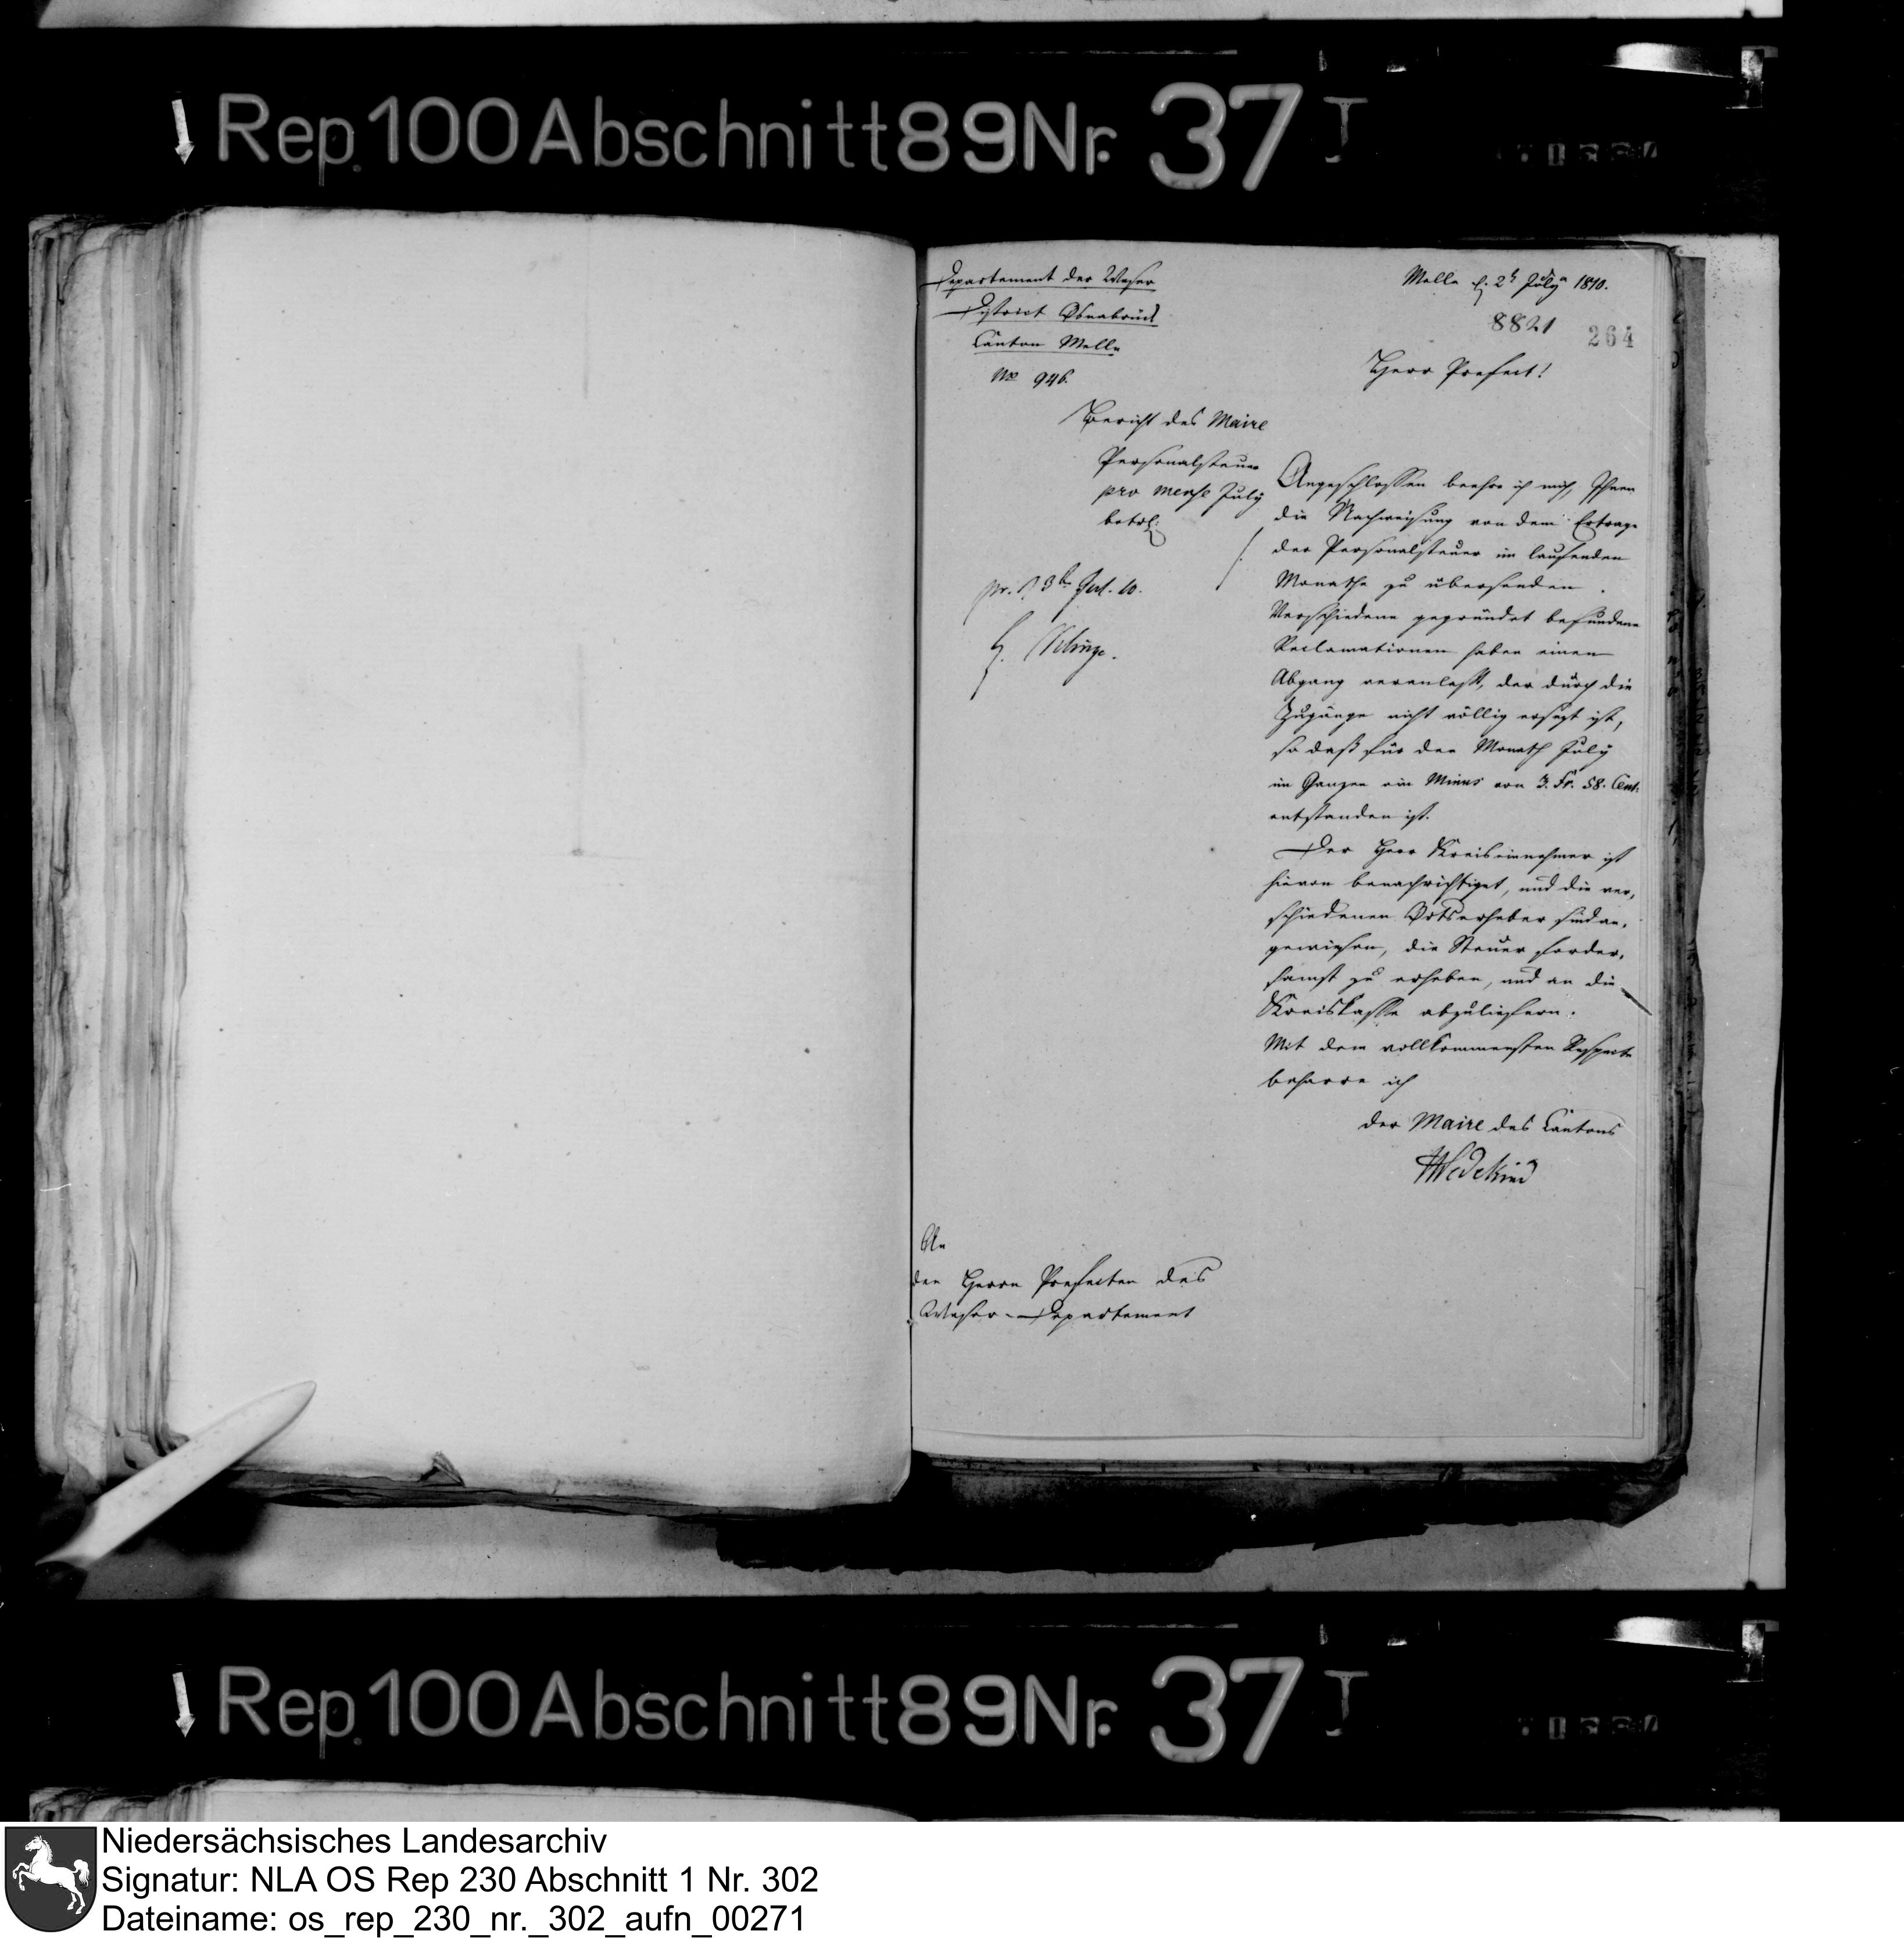 Rep. 100 Abschnitt 89 Nr. 37 I
Departement der Weser
District Osnabrück
Canton Melle
No 946.
Melle d. 2t July 1810.
8821
264
Herr Prefect!
Bericht des Maire
Personalsteuer
pro mense July
betrf.
pr. d. 3t Jul. 10.
Angeschlossen beehre ich mich, Ihnen
die Nachweisung von dem Ertrage
der Personalsteuer im laufenden
Monathe zu übersenden.
Verschiedene gegründet befundene
Reclamationen haben einen
Abgang veranlaßt, der durch die
Zugänge nicht völlig ersezt ist,
so daß für den Monath July
im Ganzen ein Minus von 3. Fr. 58. Cent.
entstanden ist.
Der Herr Kreiseinnehmer ist
hievon benachrichtiget, und die ver,
schiedenen Ortserheber sind an,
gewiesen, die Steuer forder,
samst zu erheben, und an die
Kreiskasse abzuliefern.
Mit dem vollkommensten Respecte
beharre ich
der Maire des Cantons
Wedekind
An
den Herrn Prefecten des
Weser-Departement
Rep. 100 Abschnitt 89 Nr. 37 I
Niedersächsisches Landesarchiv
Signatur: NLA OS Rep 230 Abschnitt 1 Nr. 302
Dateiname: os_rep_230_nr._302_aufn_00271